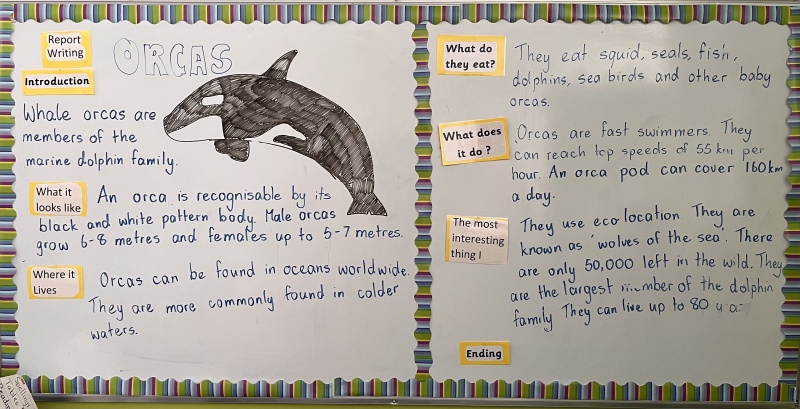 Report
Writing
ORCAS
Introduction
Whale orcas are
members of the
marine dolphin family.
What it
looks like
An orca is recognisable by its
black and white pattern body. Male orcas
grow 6-8 metres and females up to 5-7 metres.
Where it
Lives
Orcas can be found in oceans worldwide.
They are more commonly found in colder
waters.
What do
they eat?
They eat squid, seals, fish,
dolphins, sea birds and other baby
orcas.
What does
it do?
Orcas are fast swimmers. They
can reach top speeds of 55 km per
hour. An orca pod can cover 160km
a day.
The most
interesting
thing I
They use eco location. They are
known as 'wolves of the sea'. There
are only 50,000 left in the wild. They
are the largest member of the dolphin
family They can live up to 80
Ending